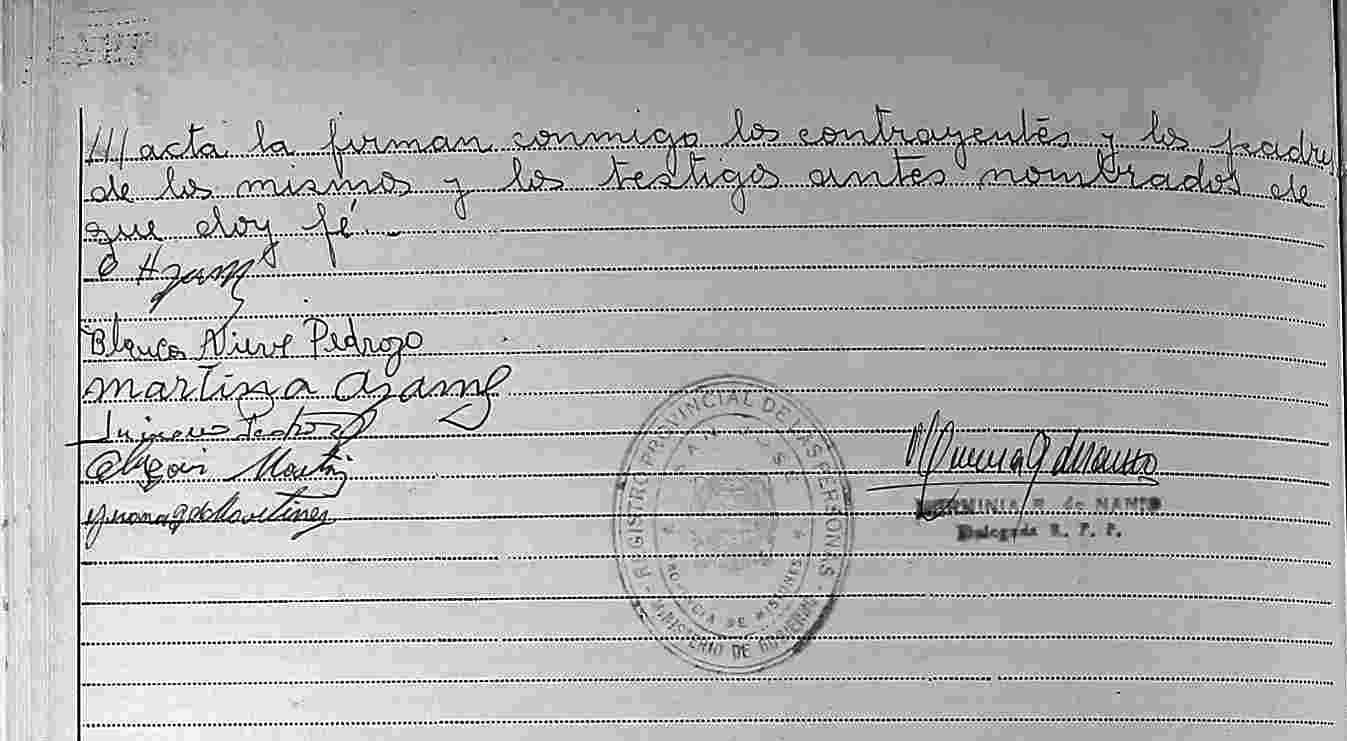 /// acta la firman conmigo los contrayentes y los padres
de los mismos y los testigos antes nombrados de
que doy fé.-
Blanca Nieve Pedrozo
martina
Martin
REGISTRO PROVINCIAL DE LAS PERSONAS
SAN JOSE
PROVINCIA DE MISIONES
MINISTERIO DE GOBIERNO
HERMINIA R. de
Delegada R. P. P.